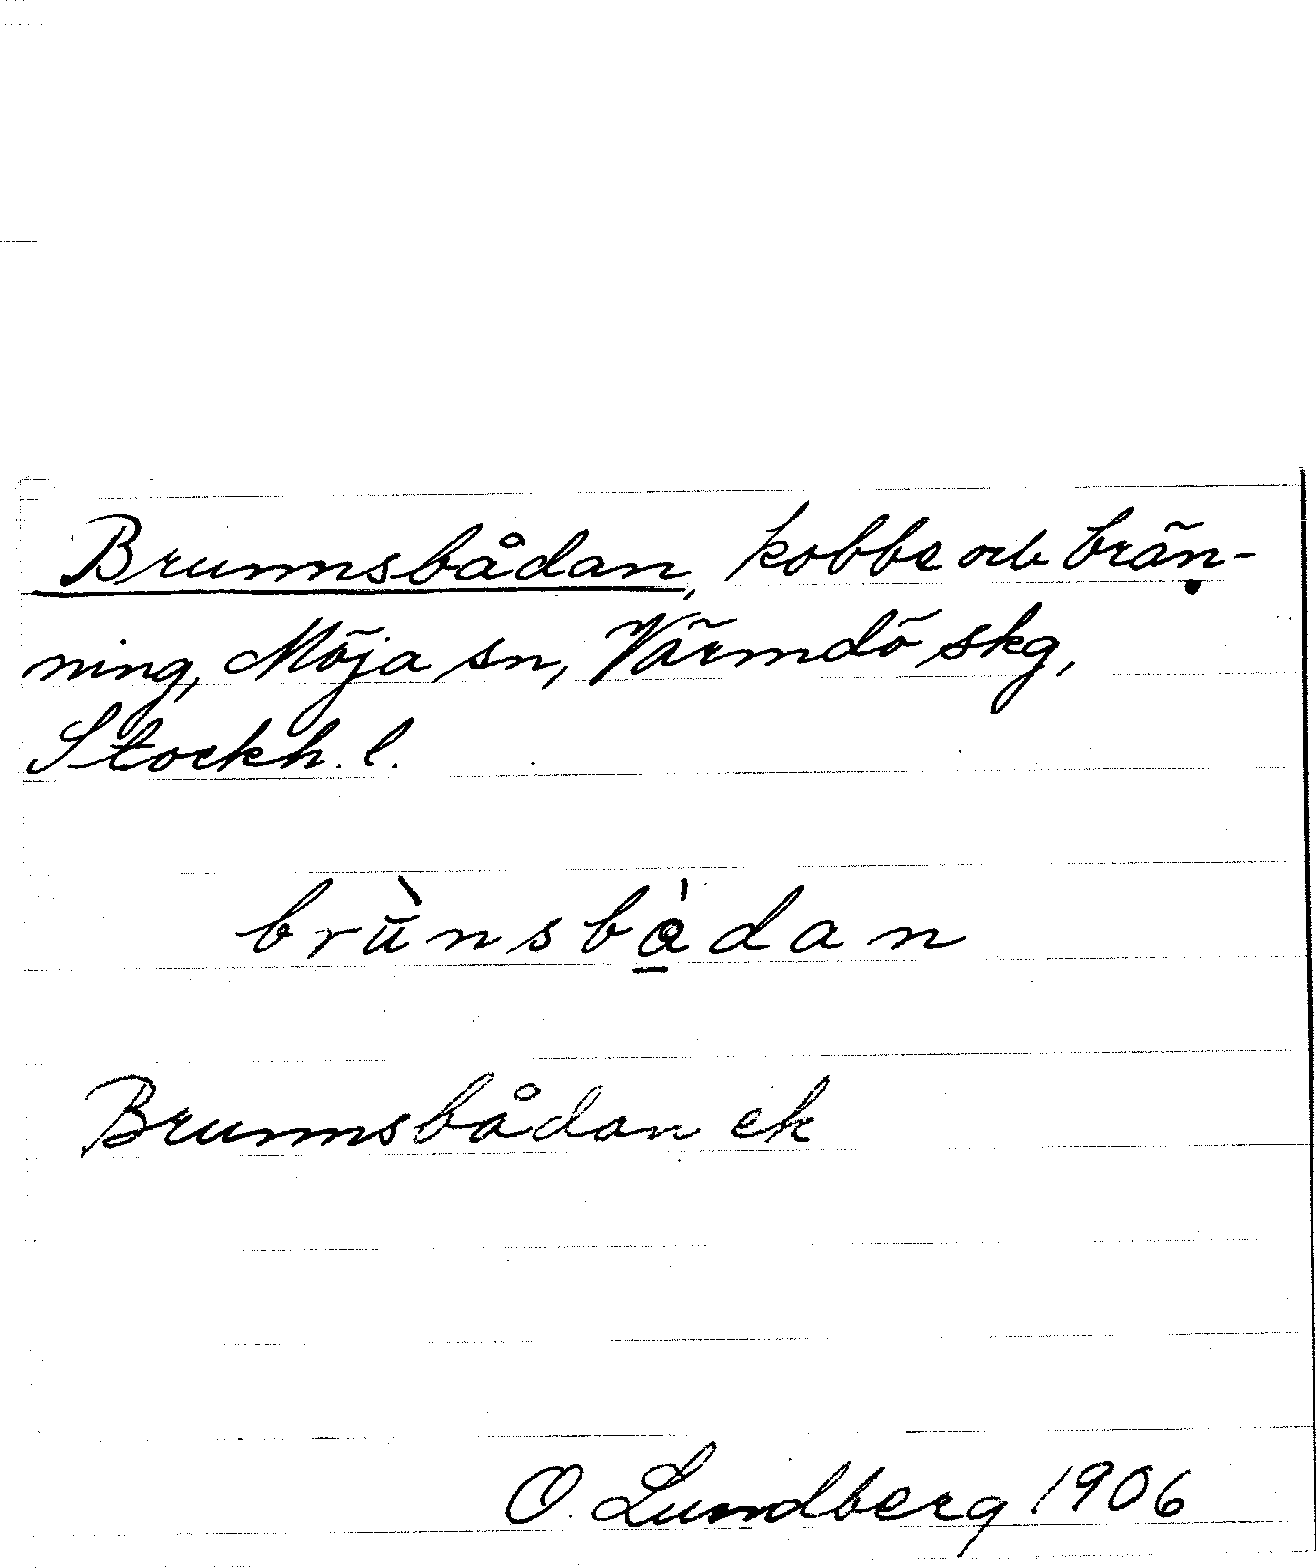 Brunnsbådan, kobbe och brän-
ning, Möja sn, Värmdö skg,
Stockh. l.
brùnsbàdan
Brunnsbådan ek
O. Lundberg 1906